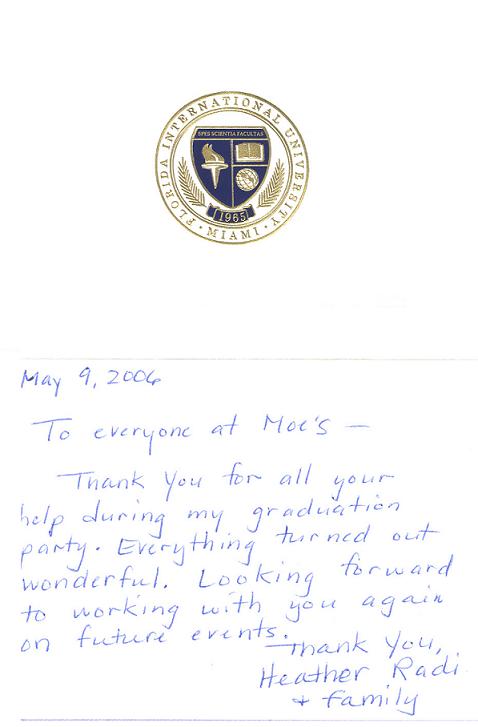 FLORIDA INTERNATIONAL UNIVERSITY
SPES SCIENTIA FACULTAS
1965
· MIAMI ·
May 9, 2006
To everyone at Moe's —
Thank You for all your
help during my graduation
party. Everything turned out
wonderful. Looking forward
to working with you again
on future events.
Thank You,
Heather Radi
+ family